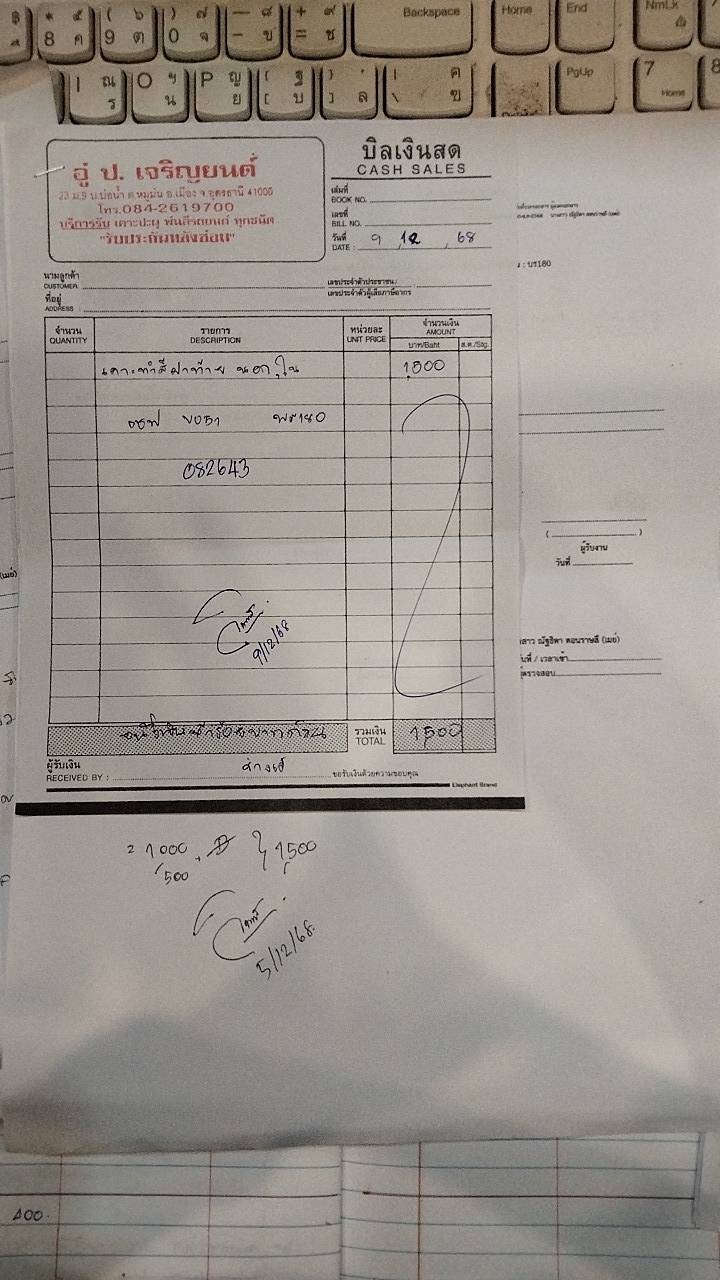 Backspace
Home
End
NmLk
PgUp
7
Home
อู่ ป. เจริญยนต์
23 ม.9 บ.บ่อน้ำ ต.หมูม่น อ.เมือง จ.อุดรธานี 41000
โทร.084-2619700
บริการรับ เคาะปะผุ พ่นสีรถยนต์ ทุกชนิด
"รับประกันหลังซ่อม"
บิลเงินสด
CASH SALES
เล่มที่
BOOK NO.
เลขที่
BILL NO.
วันที่ 9 12 68
DATE :
นามลูกค้า
CUSTOMER
เลขประจำตัวประชาชน/
เลขประจำตัวผู้เสียภาษีอากร
ที่อยู่
ADDRESS :
จำนวน
QUANTITY
รายการ
DESCRIPTION
หน่วยละ
UNIT PRICE
จำนวนเงิน
AMOUNT
บาท/Baht
ส.ต./Stg.
เคาะทำสีฝาท้าย นอก, ใน 1,500
082643
9/12/68
รวมเงิน
TOTAL 1,500
ผู้รับเงิน
RECEIVED BY :
ขอรับเงินด้วยความขอบคุณ
Elephant Brand
1000
500
1,500
5/12/68
: บร180
( )
ผู้รับงาน
วันที่
วันที่ / เวลาเข้า
400